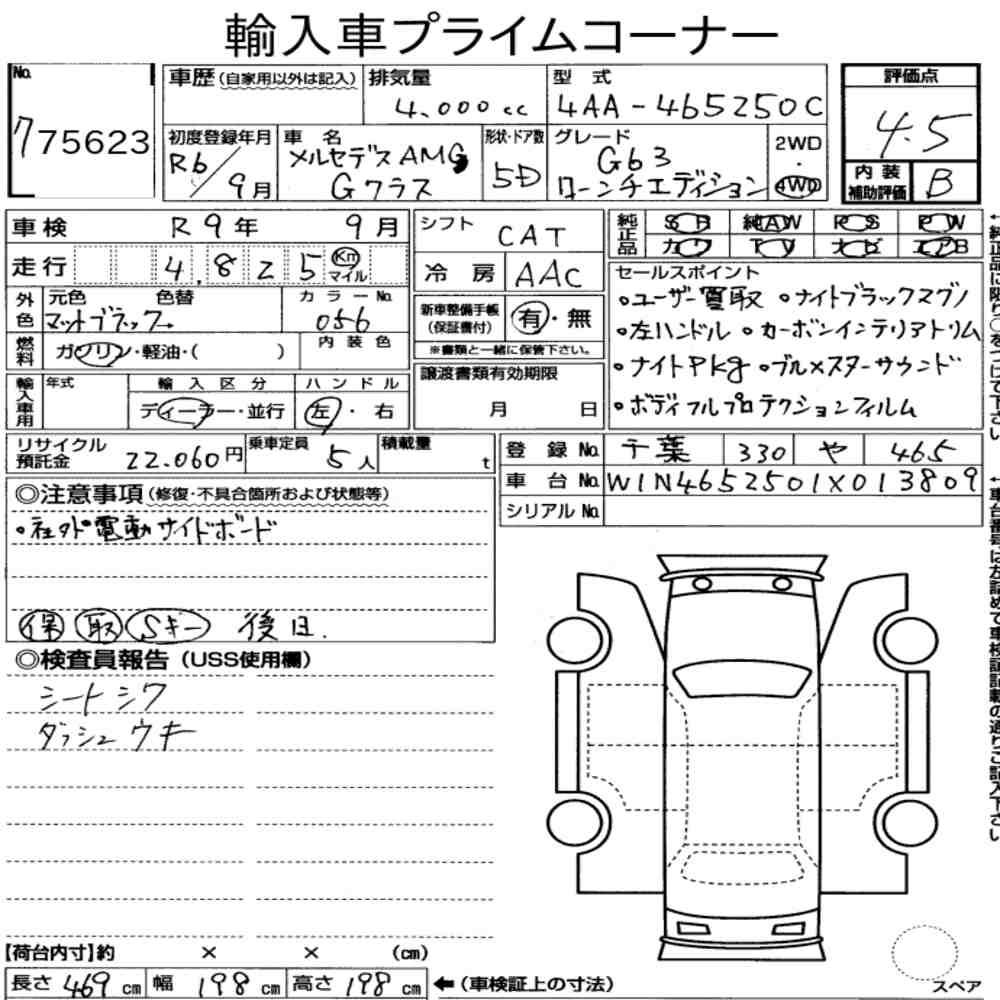 輸入車プライムコーナー
No.
775623
車歴(自家用以外は記入)
排気量
4.000cc
型式
4AA-465250C
評価点
4.5
内装補助評価
B
初度登録年月
R6/9月
車名
メルセデスAMG
Gクラス
形状・ドア数
5D
グレード
G63
ローンチエディション
2WD
・
4WD
車検
R9年 9月
走行
4,825
Km
マイル
外色
元色
色替
マットブラック
カラーNo.
056
燃料
ガソリン・軽油・( )
内装色
輸入車用
年式
輸入区分
ディーラー・並行
ハンドル
左・右
シフト
CAT
冷房
AAC
新車整備手帳
(保証書付)
有・無
※書類と一緒に保管下さい。
譲渡書類有効期限
月 日
純正品
SR 純AW PS PW
カワ TV ナビ エアB
セールスポイント
・ユーザー買取 ・ナイトブラックマグノ
・左ハンドル ・カーボンインテリアトリム
・ナイトPkg ・ブルメスターサウンド
・ボディフルプロテクションフィルム
←純正品に限り○をつけて下さい
リサイクル
預託金
22.060円
乗車定員
5人
積載量
t
登録No.
千葉 330 や 465
車台No.
W1N4652501X013809
シリアルNo.
←車台番号は左詰めで車検証記載の通りご記入下さい
◎注意事項(修復・不具合箇所および状態等)
・社外電動サイドボード
保 取 Sキー 後日.
◎検査員報告(USS使用欄)
シートシワ
ダッシュウキ
【荷台内寸】約 × × (cm)
長さ 469 cm
幅 198 cm
高さ 198 cm
←(車検証上の寸法)
スペア